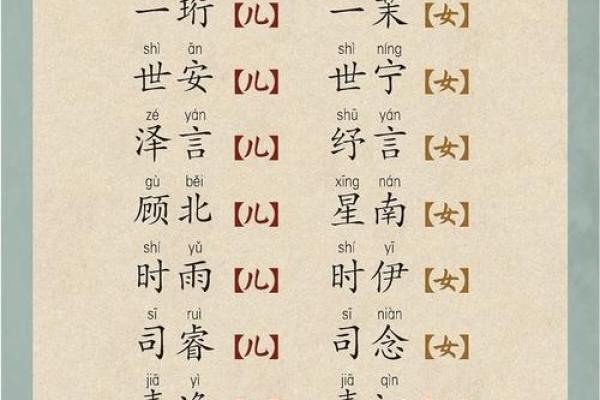 一珩【儿】 一茉【女】
shì ān shì níng
世安【儿】 世宁【女】
zé yán shū yán
泽言【儿】 纾言【女】
gù běi xīng nán
顾北【儿】 星南【女】
shí yǔ shí yī
时雨【儿】 时伊【女】
sī ruì sī niàn
司睿【儿】 司念【女】
jiā yì jiā qìn